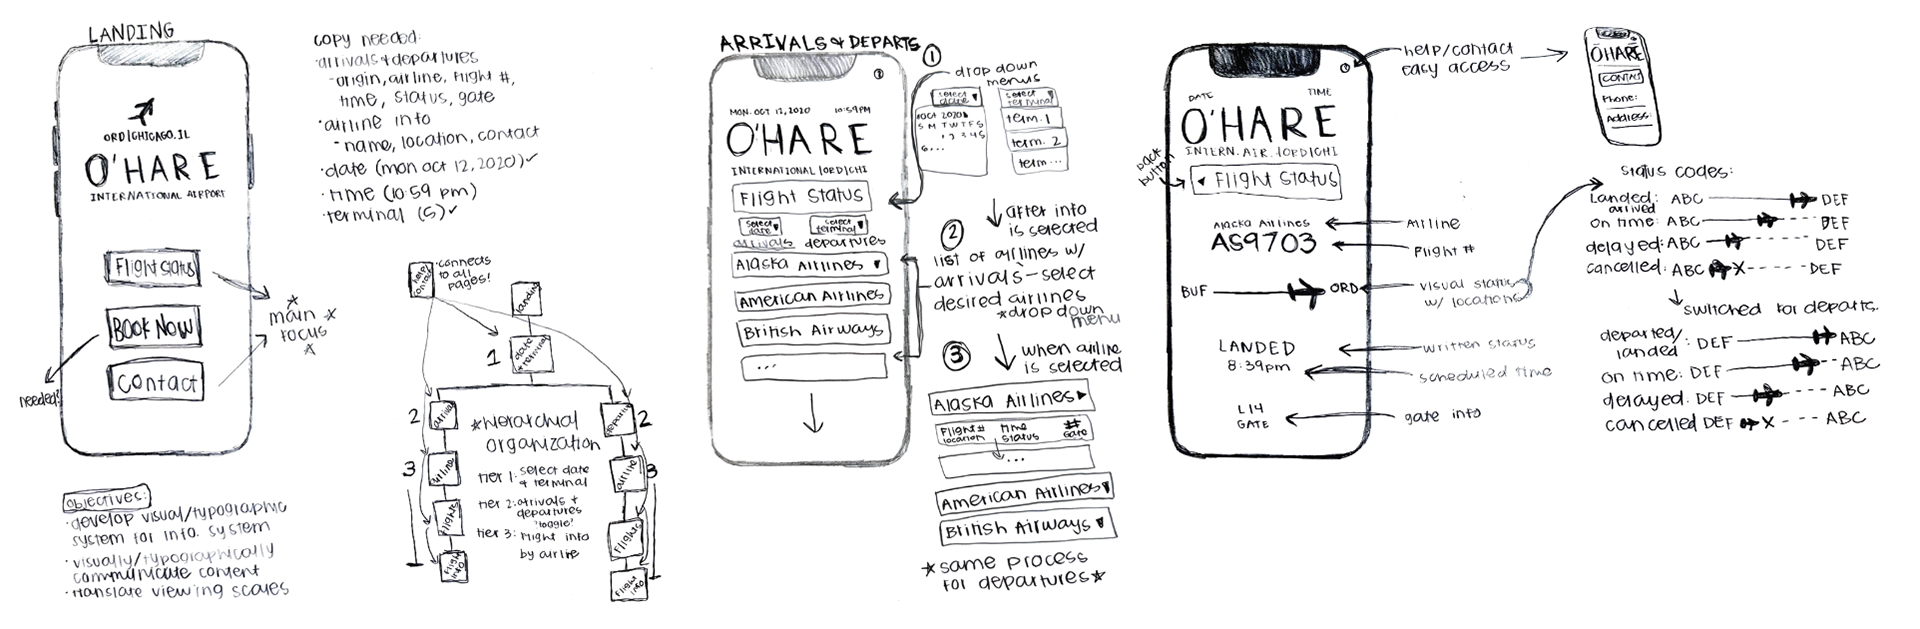 LANDING
ORD|CHICAGO.IL
O'HARE
INTERNATIONAL AIRPORT
Flight Status
BOOK NOW
Contact
needed?
main
focus
objectives:
·develop visual/typographic
system for info. system
·visually/typographically
communicate content
·translate viewing scales
copy needed:
·arrivals+departures
-origin, airline, flight #,
time, status, gate
·airline info
-name, location, contact
·date (mon oct 12,2020)✓
·time (10:59 pm)
·terminal (5)✓
help/
contact
·connects
to all
pages!
landing
1
date
+terminal
2
arrival
departure
2
3
airline
airline
3
flights
flights
flight
info
flight
info
*hierarchial
organization
tier 1: select date
+ terminal
tier 2: arrivals +
departures
"toggle"
tier 3: flight info
by airline
ARRIVALS & DEPARTS
MON. OCT 12, 2020 10:59PM
O'HARE
INTERNATIONAL |ORD|CHI
Flight Status
select
date ▼
select
terminal ▼
arrivals departures
Alaska Airlines ▼
American Airlines
British Airways
...
①
drop down
menus
select
date ▼
OCT 2020
S M T W T F S
1 2 3 4 5
6...
select
terminal
term. 1
term. 2
term...
after info
is selected
②
list of airlines w/
arrivals - select
desired airlines
*drop down
menu
③
when airline
is selected
Alaska Airlines ▶
Flight#
location
time
status
##
Gate
...
American Airlines ▼
British Airways ▼
*same process
for departures*
DATE TIME
O'HARE
INTERN. AIR. |ORD|CHI
back
button
◂ Flight Status
Alaska Airlines
AS9703
BUF ORD
LANDED
8:39pm
L14
GATE
help/contact
easy access
Airline
Flight #
visual status
w/ locations
written status
scheduled time
gate info
O'HARE
CONTACT
Phone:
Address:
status codes:
landed: ABC DEF
arrived
on time: ABC DEF
delayed: ABC DEF
cancelled: ABC X DEF
switched for departs.
departed/
landed: DEF ABC
on time: DEF ABC
delayed: DEF ABC
cancelled DEF X ABC